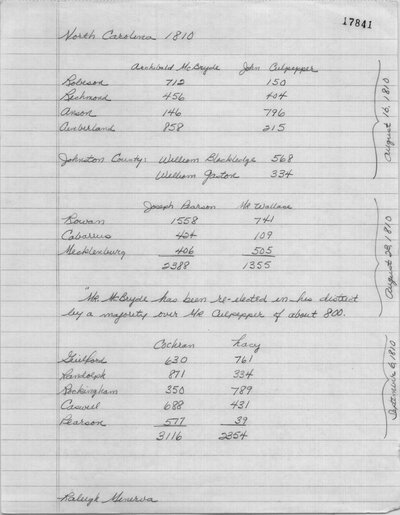 17841
North Carolina 1810
Archibald McBryde John Culpepper
Robeson 712 150
Richmond 456 404
Anson 146 796
Cumberland 858 215
August 16, 1810
Johnston County: William Blackledge 568
William Gaston 334
Joseph Pearson Mr Wallace
Rowan 1558 741
Cabarrus 424 109
Mecklenburg 406 505
2388 1355
August 23, 1810
"Mr. McBryde has been re-elected in his district
by a majority over Mr Culpepper of about 800.
Cochran Lacy
Guilford 630 761
Randolph 871 334
Rockingham 350 789
Caswell 688 431
Pearson 577 39
3116 2354
September 6, 1810
Raleigh Minerva